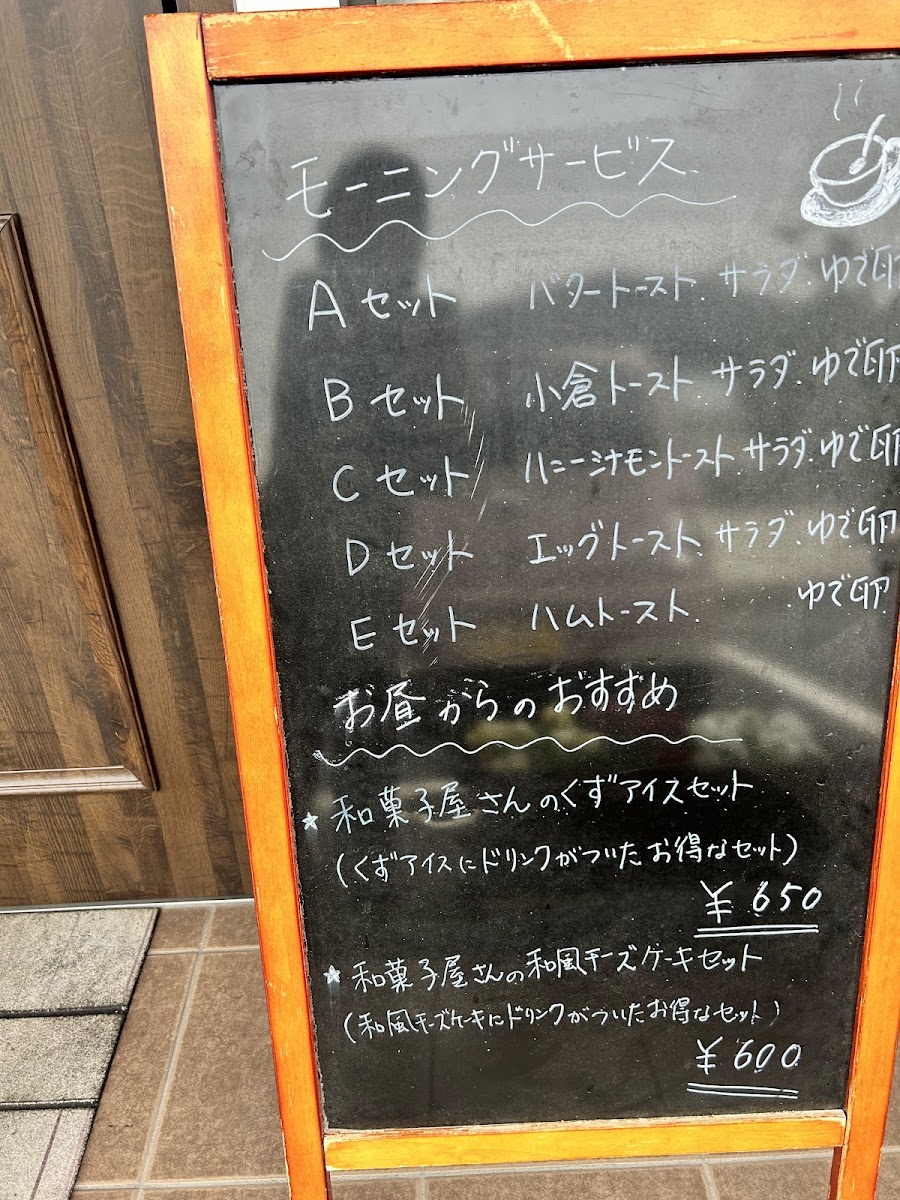 モーニングサービス
Aセット バタートースト.サラダ.ゆで卵
Bセット 小倉トースト サラダ.ゆで卵
Cセット ハニーシナモントースト.サラダ.ゆで卵
Dセット エッグトースト.サラダ.ゆで卵
Eセット ハムトースト. ゆで卵
お昼からのおすすめ
★和菓子屋さんのくずアイスセット
(くずアイスにドリンクがついたお得なセット)
¥650
★和菓子屋さんの和風チーズケーキセット
(和風チーズケーキにドリンクがついたお得なセット)
¥600